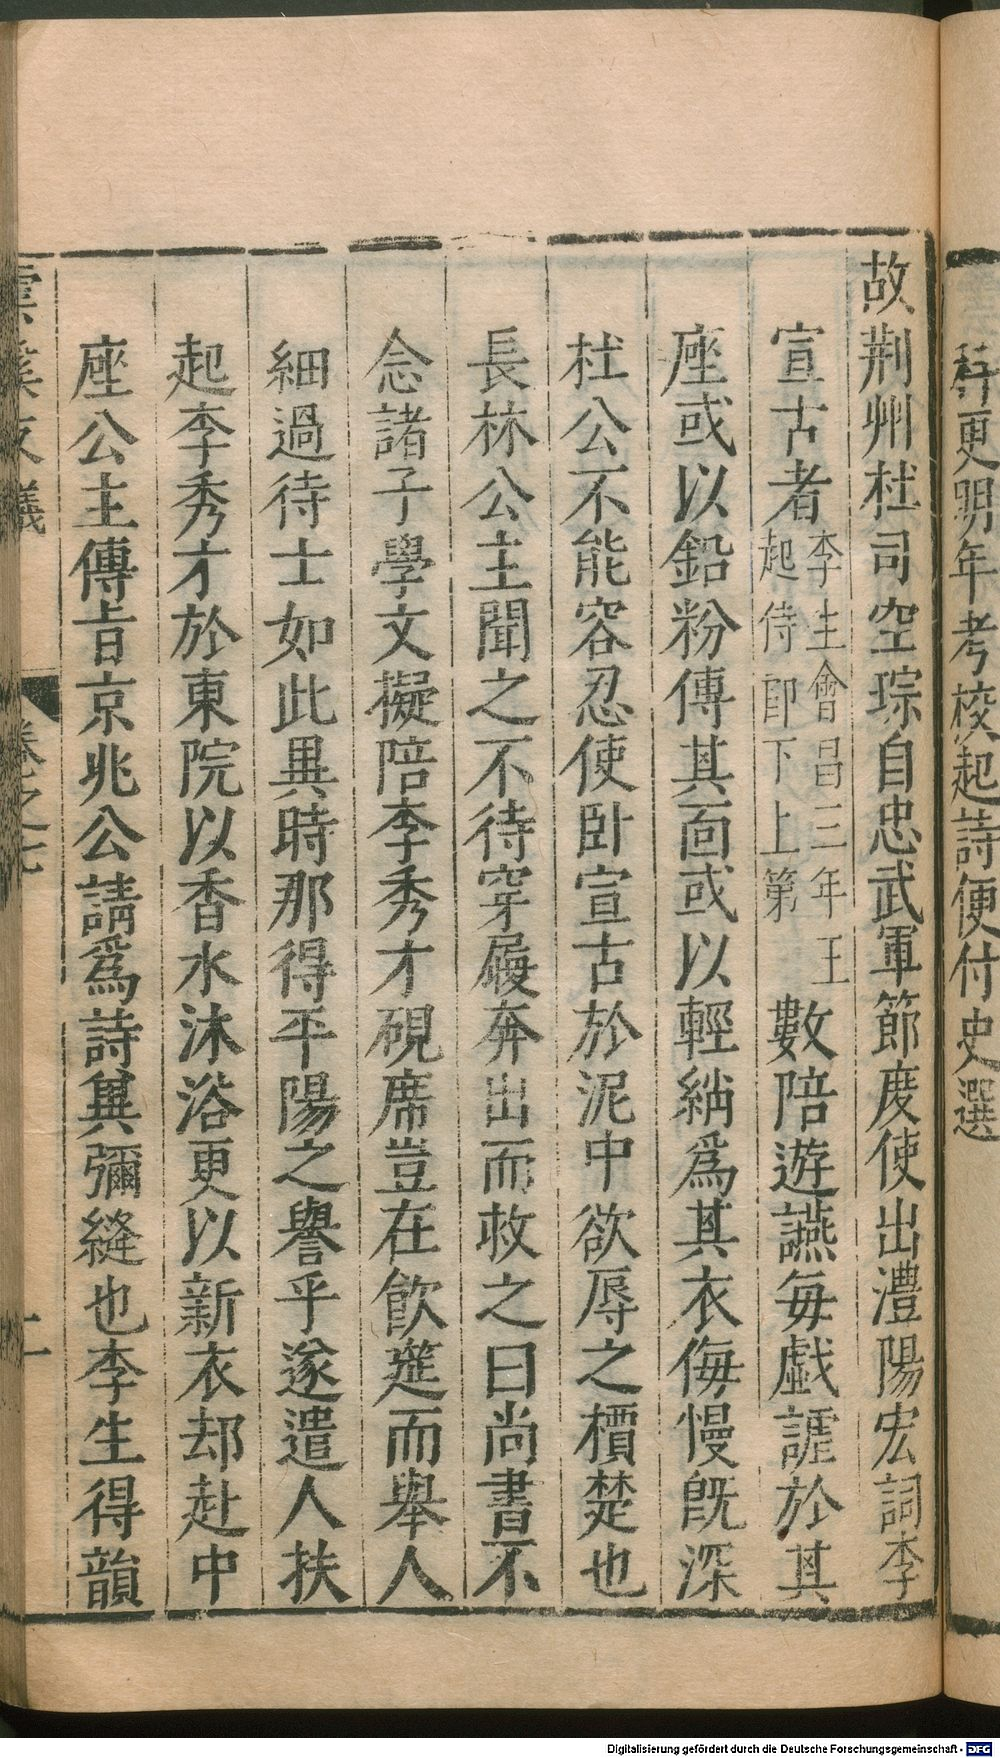 蘇更明年考校起詩便付史選
故荆州杜司空琮自忠武軍節度使出澧陽宏詞李
宣古者李生會昌三年王起侍郎下上第數陪遊讌每戯謔於其
座或以鉛粉傅其面或以輕綃爲其衣侮慢旣深
杜公不能容忍使卧宣古於泥中欲辱之檟楚也
長林公主聞之不待穿屐奔出而救之曰尚書不
念諸子學文擬陪李秀才硯席豈在飲筵而舉人
細過待士如此異時那得平陽之譽乎遂遣人扶
起李秀才於東院以香水沐浴更以新衣却赴中
座公主傳旨京兆公請爲詩兾彌縫也李生得韻
雲溪友議
卷之七
二
Digitalisierung gefördert durch die Deutsche Forschungsgemeinschaft - DFG